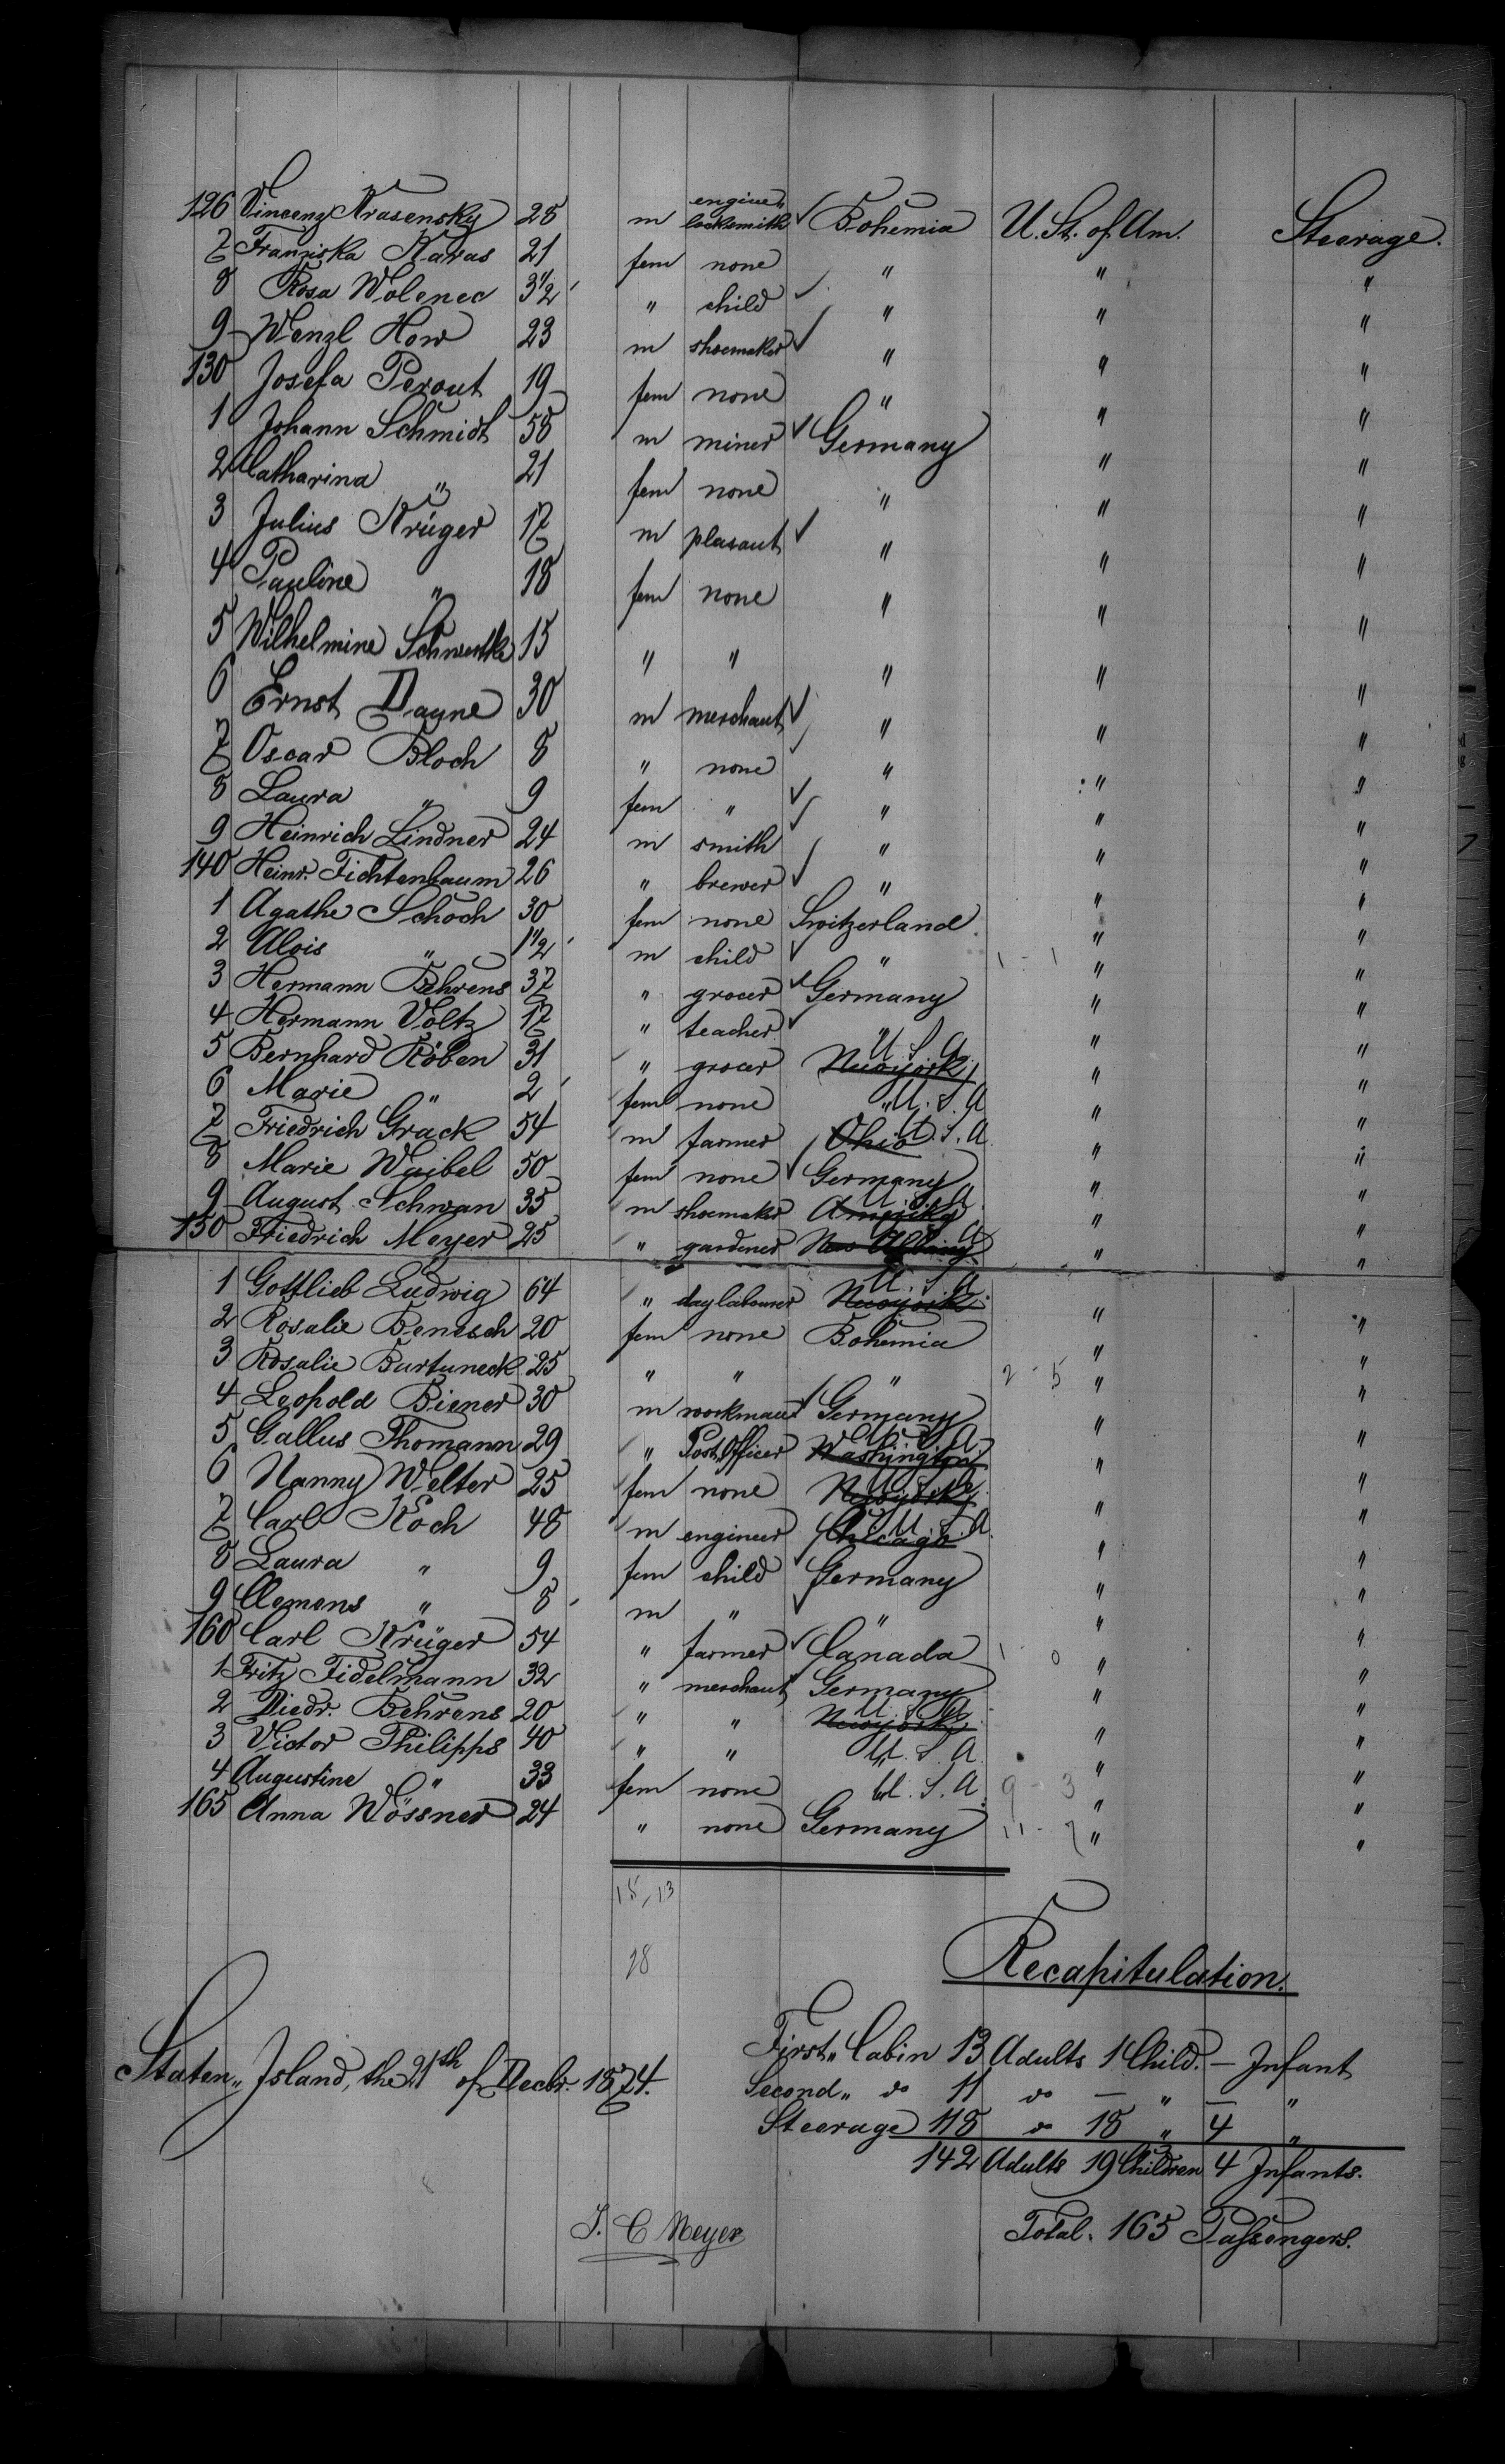 126 Vincenz Krasensky 28 m engine" locksmith Bohemia U. St. of Am. Steerage.
7 Franziska Karas 21 fem none " " "
8 Rosa Wolenec 3 1/2 " child " " "
9 Wenzl How 23 m shoemaker " " "
130 Josefa Perout 19 fem none " " "
1 Johann Schmidt 58 m miner Germany " "
2 Catharina " 21 fem none " " "
3 Julius Krüger 17 m pleasant " " "
4 Pauline " 18 fem none " " "
5 Wilhelmine 15 " " " " "
6 Ernst Dayne 30 m merchant " " "
7 Oscar Bloch 8 " none " " "
8 Laura " 9 fem " " " "
9 Heinrich Lindner 24 m smith " " "
140 Heinr. Fichtenbaum 26 " brewer " " "
1 Agathe Schoch 30 fem none Switzerland " "
2 Alois " 1 1/2 m child " 1 - 1 " "
3 Hermann Behrens 37 " grocer Germany " "
4 Hermann Voltz 17 " teacher " " "
5 Bernhard Röben 31 " grocer Newyork U S A " "
6 Marie " 2 fem none " U. S. A " "
7 Friedrich Grack 54 m farmer Ohio U. S. A " "
8 Marie Waibel 50 fem none Germany " "
9 August Schwan 35 m shoemaker Amerika U. S. A " "
150 Friedrich Meyer 25 " gardener New Albany A " "
1 Gottlieb Ludwig 64 " daylabourer Newyork U. S. A " "
2 Rosalie Benesch 20 fem none Bohemia " "
3 Rosalie Burtuneck 25 " " " 2 - 5 " "
4 Leopold Biener 30 m workmaur Germany " "
5 Gallus Thomann 29 " Post Officer Washington U. S. A. " "
6 Nanny Welter 25 fem none Newyork U S A " "
7 Carl Koch 48 m engineer Chicago U. S. A. " "
8 Laura " 9 fem child Germany " "
9 Clemens " 8 m " " " "
160 Carl Krüger 54 " farmer Canada 1 0 " "
1 Fritz Fidelmann 32 " merchant Germany " "
2 Diedr. Behrens 20 " " Newyork U. S. A " "
3 Victor Philipps 40 " " " U. S. A. " "
4 Augustine " 33 fem none " U. S. A. 9 - 3 " "
165 Anna Wössner 24 " none Germany 11 - 7 " "
15, 13
28
Recapitulation.
Staten" Island, the 21th of Decbr. 1874.
First" Cabin 13 Adults 1 Child. — Infant
Second" do 11 do — " — "
Steerage 118 do 18 " 4 "
142 Adults 19 Children 4 Infants.
J. C Meyer
Total. 165 Passengers.